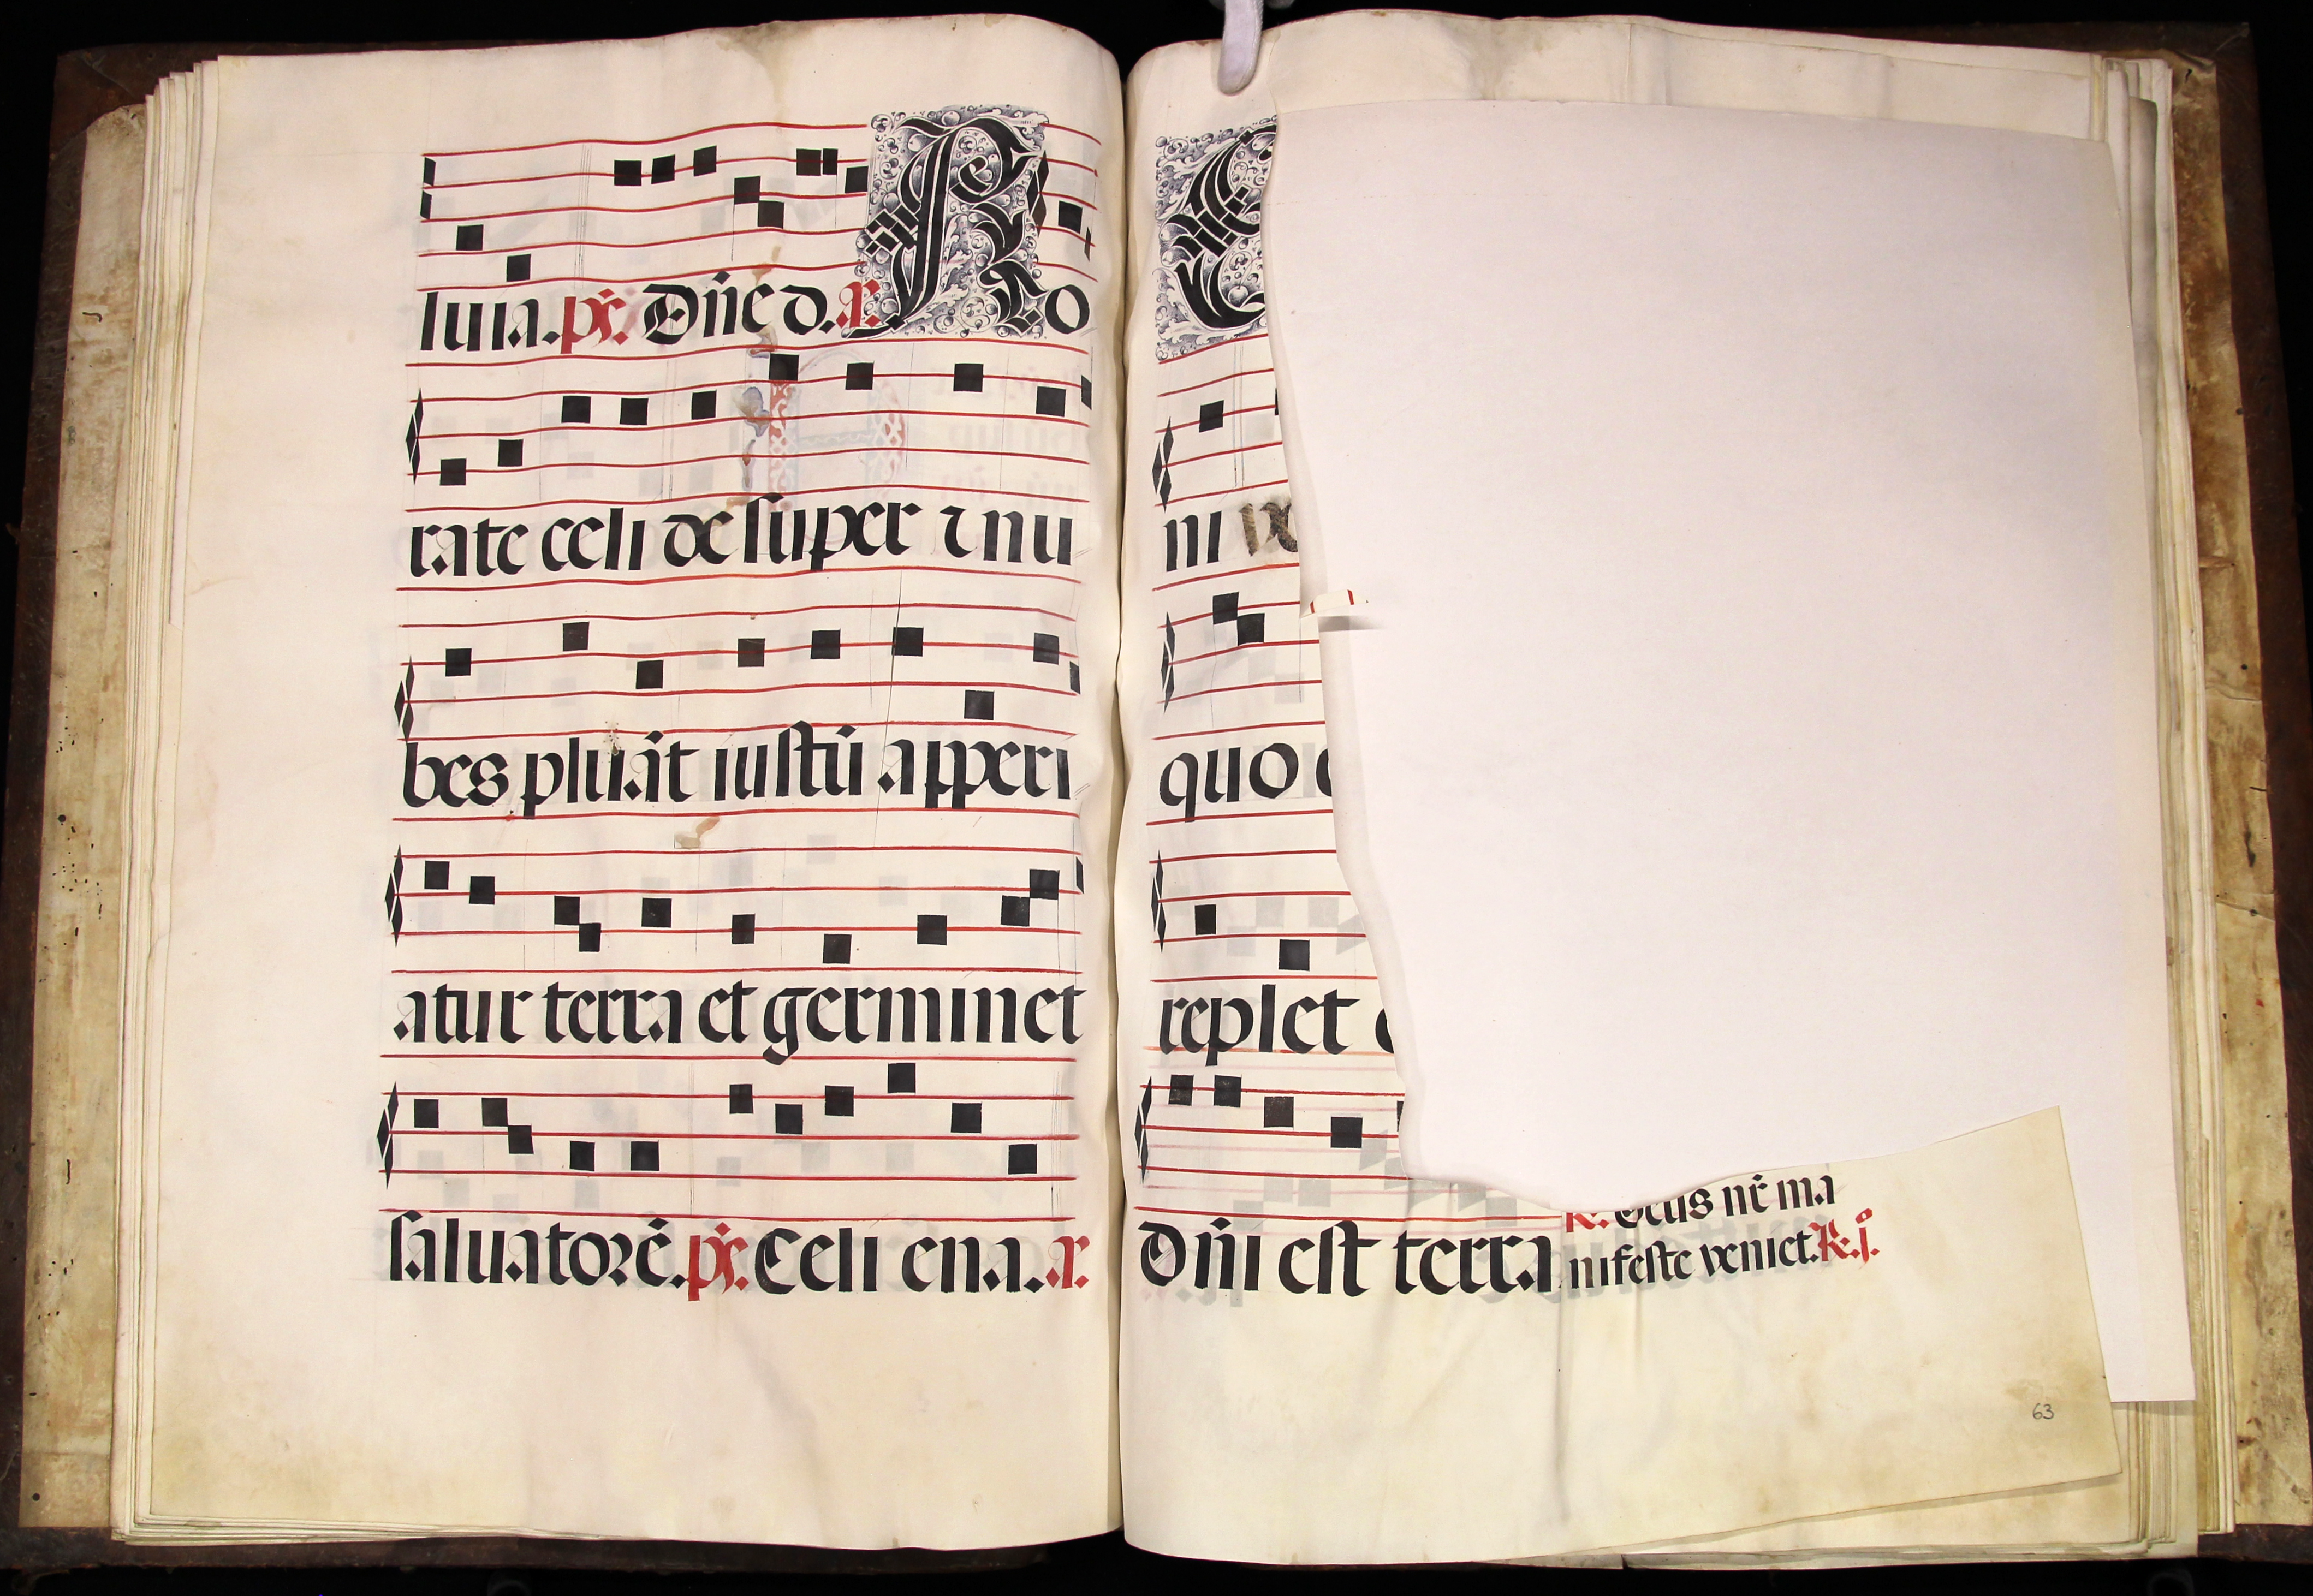 luia. ps. Dñe d. a. Ro
rate celi desuper ⁊ nu
bes pluãt iustũ apperi
atur terra et germinet
saluatorẽ. ps. Celi ena. a.
E
ni
quo
replet
Dñi est terra
R. Deus nr̃ ma
nifeste veniet. R. j.
63